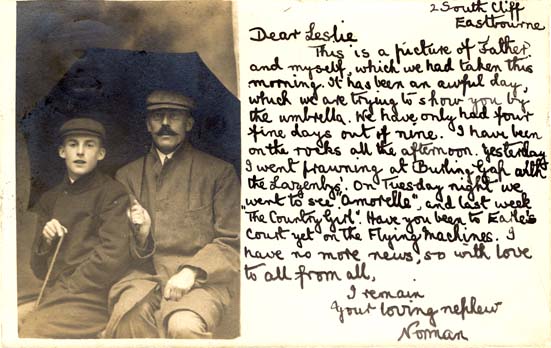 2 South Cliff
Eastbourne
Dear Leslie
This is a picture of Father,
and myself, which we had taken this
morning. It has been an awful day,
which we are trying to show you by
the umbrella. We have only had four
fine days out of nine. I have been
on the rocks all the afternoon. Yesterday
I went prawning at Burling Gap with
the Lazenbys. On Tuesday night we
went to see "Amorelle", and last week
"The Country Girl". Have you been to Earle's
Court yet on the Flying Machines. I
have no more news, so with love
to all from all,
I remain
Your loving nephew
Norman